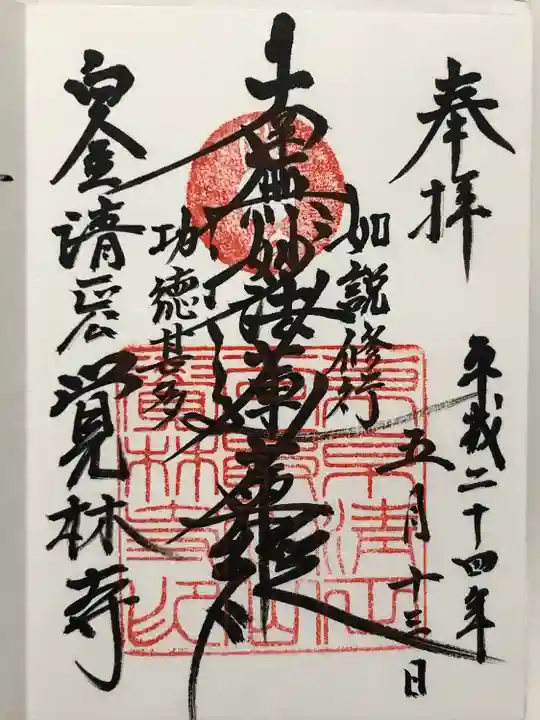 奉拝
平成二十四年
五月十三日
如説修行
南無妙法蓮華経
功徳甚多
白金清正公
覚林寺